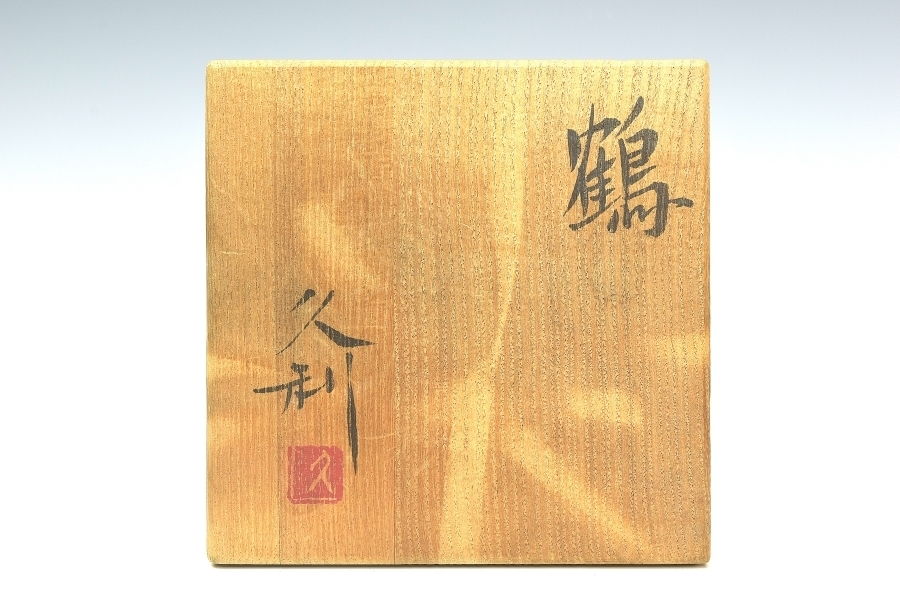 鶴
久利
久